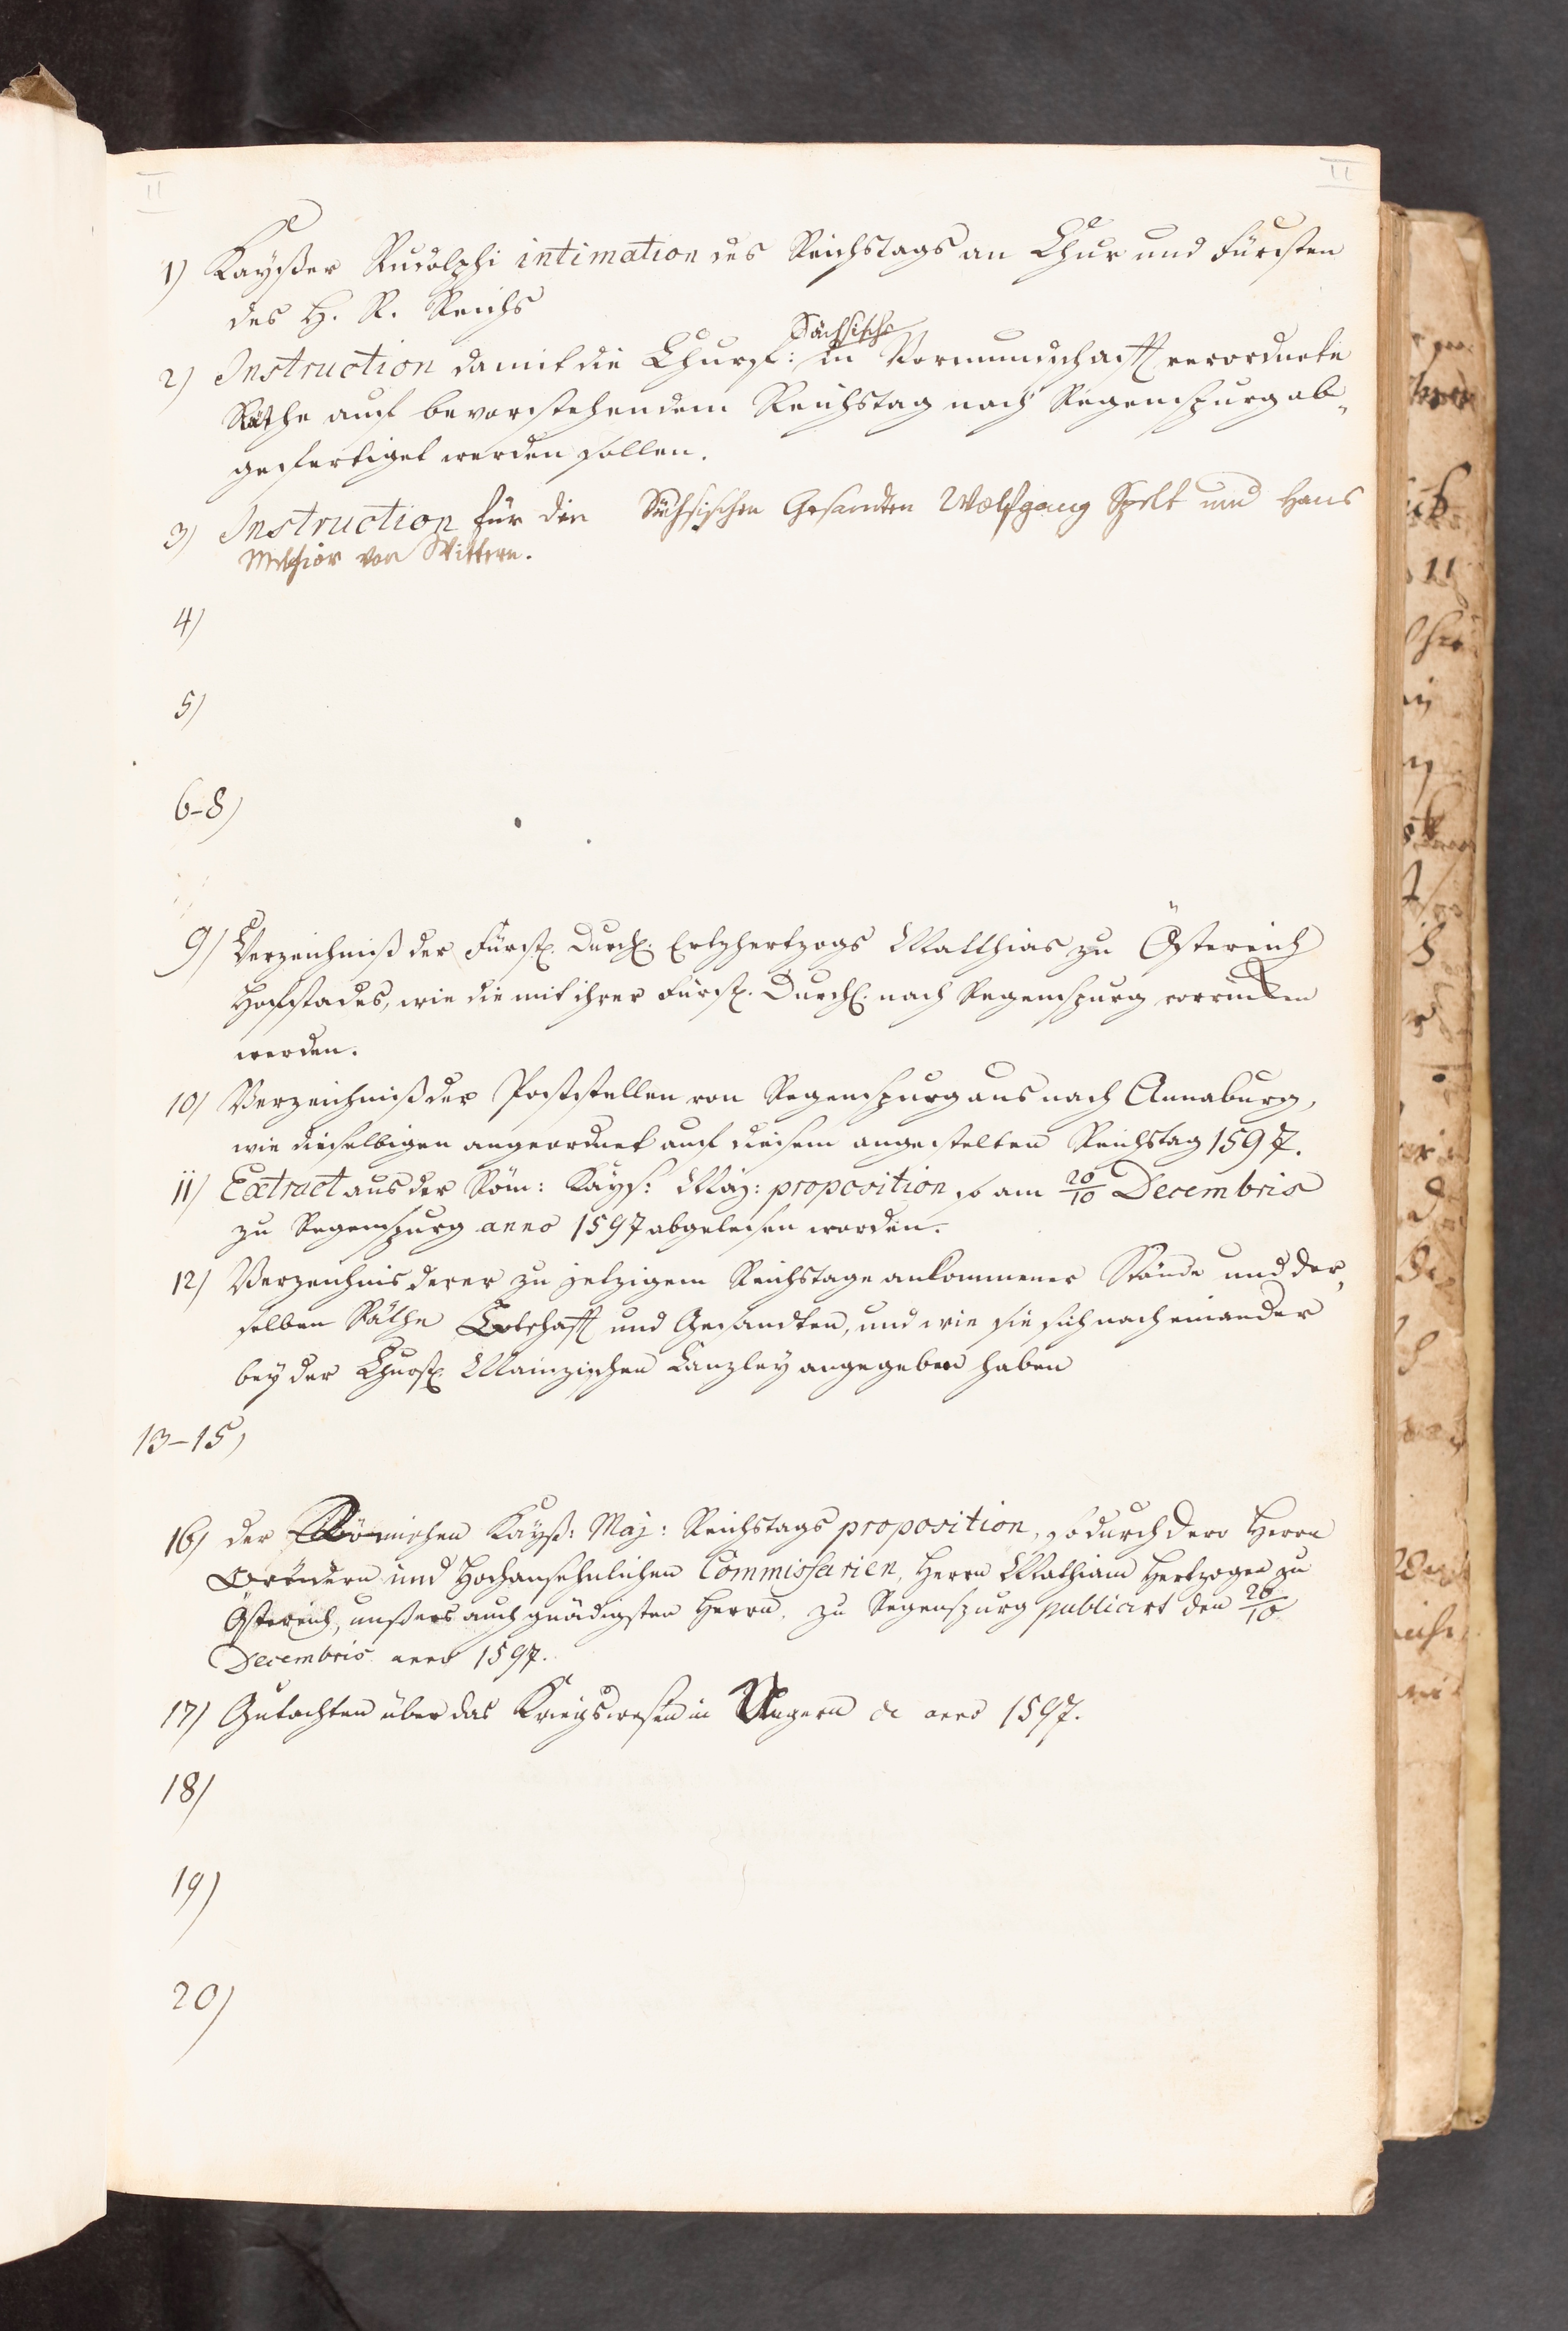 II II
1) Kayßer Rudolphi intimation des Reichstags an Chur und Fürsten
des H. R. Reichs
Sächsische
2) Instruction damit die Churf: in Vormundschafft verordnete
Räthe auf bevorstehendem Reichstag nach Regenspurg ab„
gefertiget werden sollen.
3) Instruction für die Sächsischen Gesandten Wolfgang und Hans
Melchior von Wittern.
4)
5)
6–8)
9) Verzeichniß der Fürstl. Durchl. Ertzhertzogs Matthias zu Östereich
Hoffstades, wie die mit ihrer Fürstl. Durchl. nach Regenspurg vorrücken
werden.
10) Verzeichniß der Poststellen von Regenspurg aus nach Annaburg,
wie dieselbigen angeordnet auf diesem angestelten Reichstag 1597.
11) Extract aus der Röm: Kays: Maj: proposition so am 20/10 Decembris
zu Regenspurg anno 1597 abgelesen worden.
12) Verzeichnis derer zu jetzigem Reichstage ankommener Stände und der„
selben Räthe Botschafft und Gesandten, und wie sie sich nach einander
bey der Churfl. Mainzischen Canzley angegeben haben
13–15)
16) der Römischen Kayß: Maj: Reichstags proposition, so durch dero Herrn
Brüdern und Hochansehnlichen Commissarien, Herrn Mathiam Hertzogen zu
Östereich, unßers auch gnädigsten Herrn, zu Regenspurg publicirt den 20/10
Decembris anno 1597.
17) Gutachten über das Kriegswesen in Ungern de anno 1597.
18)
19)
20)